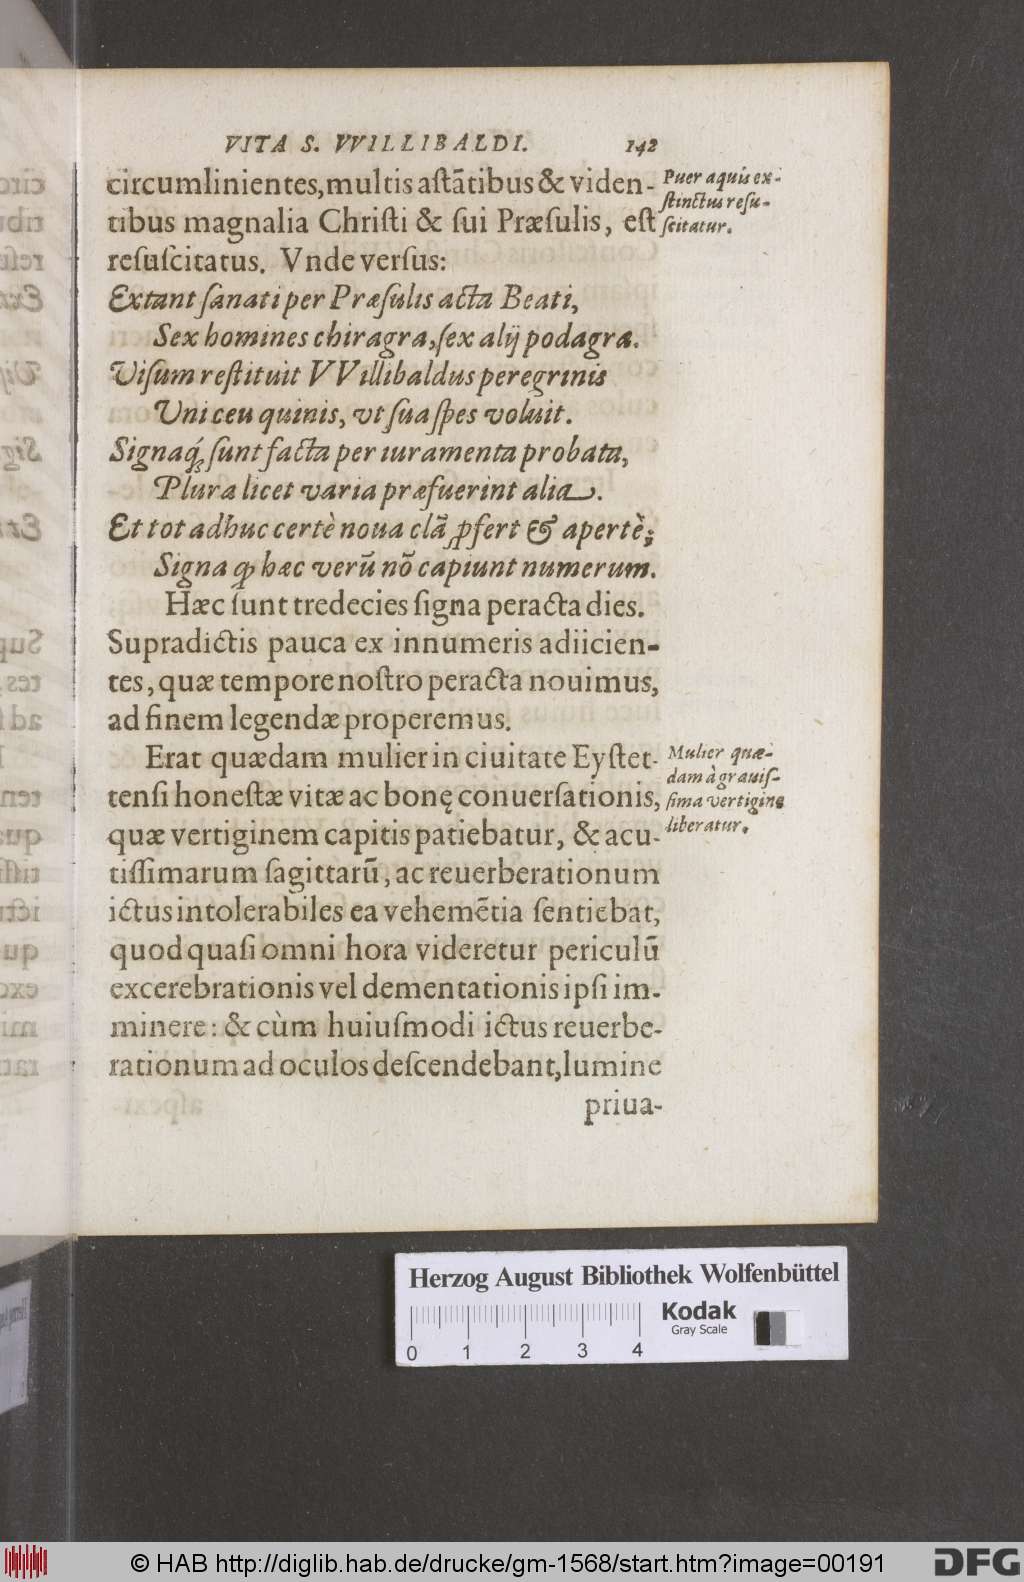 VITA S. VVILLIBALDI. 142
circumlinientes, multis astãtibus & viden-
tibus magnalia Christi & sui Præsulis, est
resuscitatus. Vnde versus:
Puer aquis ex-
stinctus resu-
scitatur.
Extant sanati per Præsulis acta Beati,
Sex homines chiragra, sex alij podagra.
Visum restituit VVillibaldus peregrinis
Uni ceu quinis, vt sua spes voluit.
Signaq́ꝫ sunt facta per iuramenta probata,
Plura licet varia præfuerint alia.
Et tot adhuc certè noua clã ꝓfert & apertè;
Signa ꝙ hæc verũ nõ capiunt numerum.
Hæc sunt tredecies signa peracta dies.
Supradictis pauca ex innumeris adiicien-
tes, quæ tempore nostro peracta nouimus,
ad finem legendæ properemus.
Erat quædam mulier in ciuitate Eystet-
tensi honestæ vitæ ac bonę conuersationis,
quæ vertiginem capitis patiebatur, & acu-
Mulier quæ-
dam à grauis-
sima vertigine
liberatur.
tissimarum sagittarũ, ac reuerberationum
ictus intolerabiles ea vehemẽtia sentiebat,
quod quasi omni hora videretur periculũ
excerebrationis vel dementationis ipsi im-
minere: & cùm huiusmodi ictus reuerbe-
rationum ad oculos descendebant, lumine
priua-
Herzog August Bibliothek Wolfenbüttel
Kodak
Gray Scale
0 1 2 3 4
© HAB http://diglib.hab.de/drucke/gm-1568/start.htm?image=00191
DFG